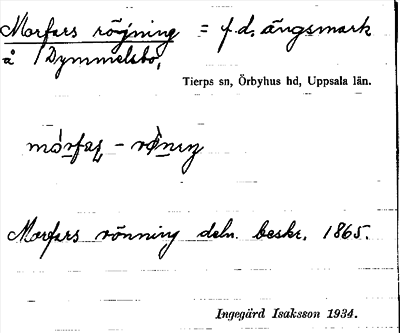 Morfars röjning = f.d. ängsmark
å Dymmelsbo,
Tierps sn, Örbyhus hd, Uppsala län.
Morfars rönning deln. beskr. 1865.
Ingegärd Isaksson 1934.